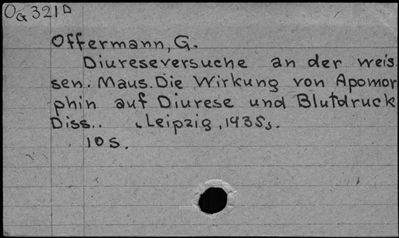 OG 321 D
Offermann, G.
Diureseversuche an der weis
sen. Maus. Die Wirkung von Apomor
phin auf Diurese und Blutdruck
Diss.. Leipzig, 1935.
10 S.